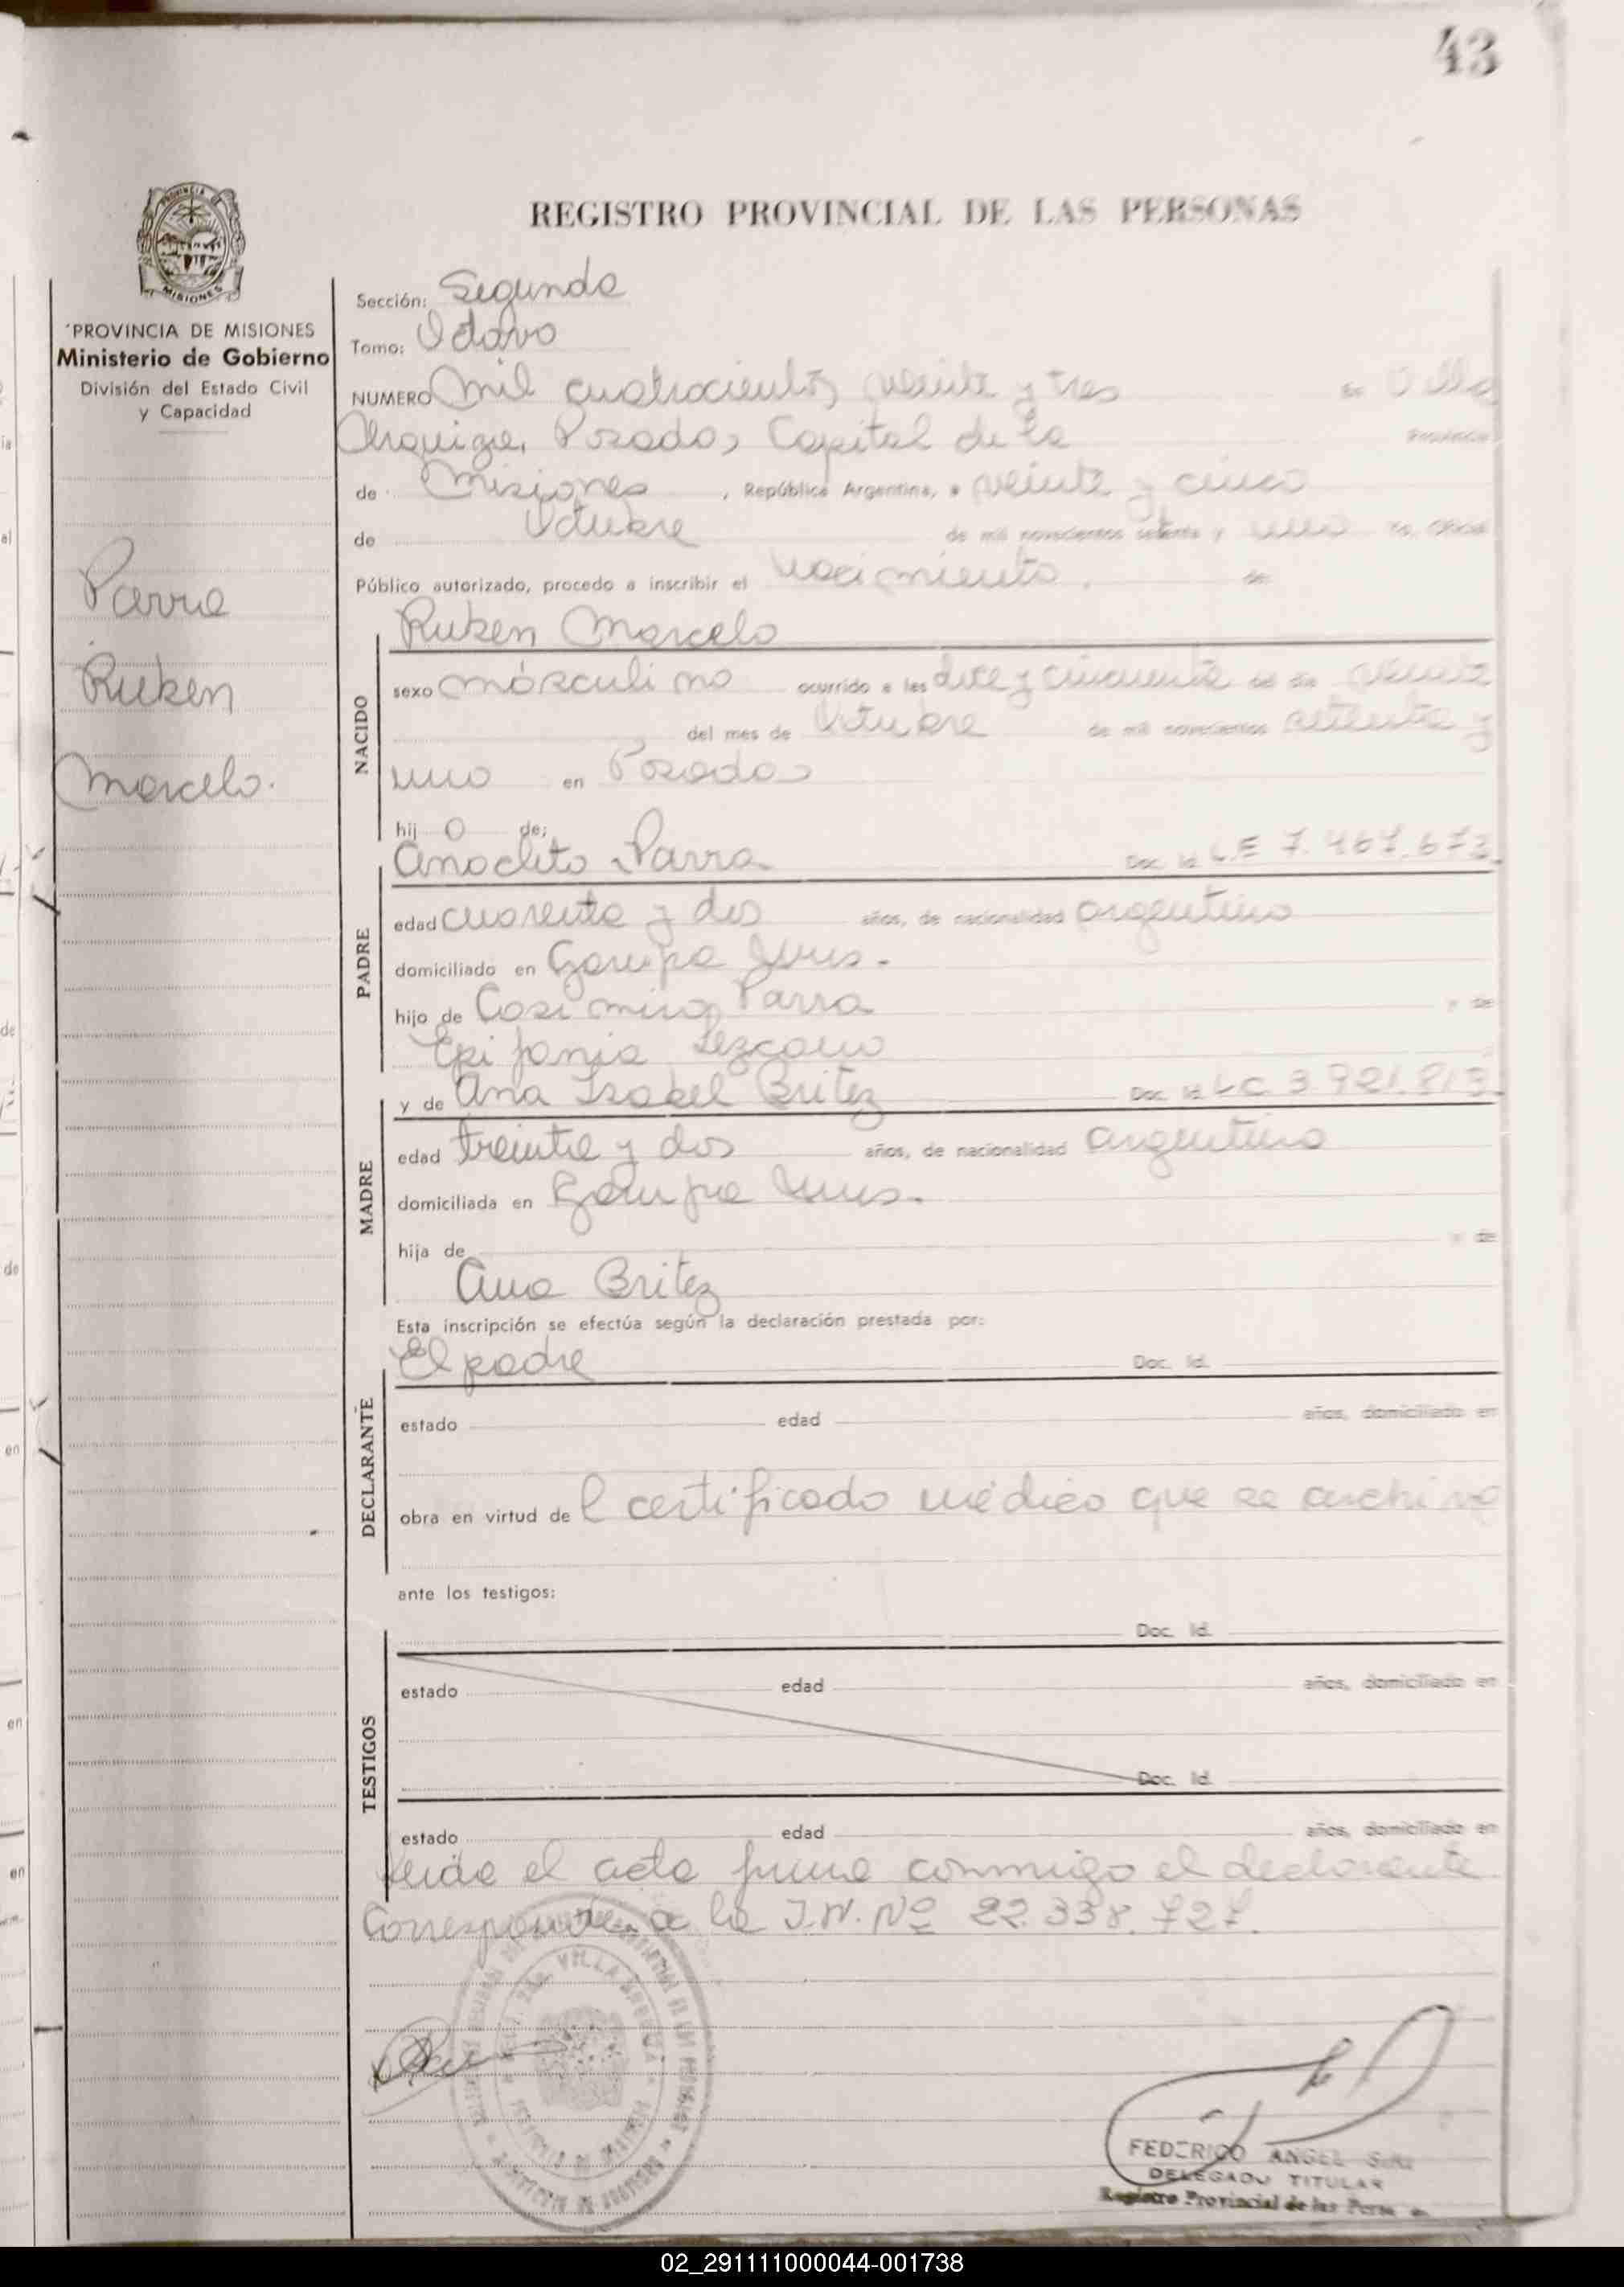 43
PROVINCIA
MISIONES
PROVINCIA DE MISIONES
Ministerio de Gobierno
División del Estado Civil
y Capacidad
Parra
Ruben
Marcelo.
REGISTRO PROVINCIAL DE LAS PERSONAS
Sección: Segunda
Tomo: Octavo
NUMERO mil cuatrocientos veinte y tres en Villa
Urquiza, Posadas, Capital de la Provincia
de Misiones, República Argentina, a veinte y cinco
de Octubre de mil novecientos setenta y uno yo, Oficial
Público autorizado, procedo a inscribir el nacimiento. de:
Ruben Marcelo
NACIDO
sexo másculino ocurrido a las doce y cincuenta del día veinte
del mes de Octubre de mil novecientos setenta y
uno en Posadas
hij o de:
Anacleto Parra Doc. Id. L.E 7.467.673
PADRE
edad cuarenta y dos años, de nacionalidad argentino
domiciliado en Garupa Mnes.
hijo de Casimiro Parra y de
Epifania Lezcano
y de Ana Isabel Britez Doc. Id. L.C 3.921.813
MADRE
edad treinta y dos años, de nacionalidad argentina
domiciliada en Garupa Mnes.
hija de y de
Ana Britez
Esta inscripción se efectúa según la declaración prestada por:
El padre Doc. Id.
DECLARANTE
estado edad años, domiciliado en
obra en virtud de l certificado médico que se archiva
ante los testigos:
Doc. Id.
TESTIGOS
estado edad años, domiciliado en
Doc. Id.
estado edad años, domiciliado en
Leida el acta firma conmigo el declarante
Corresponde a la I.N. Nº 22.338.727.
VILLA URQUIZA
FEDERICO ANGEL
DELEGADO TITULAR
Registro Provincial de las Personas
02_291111000044-001738